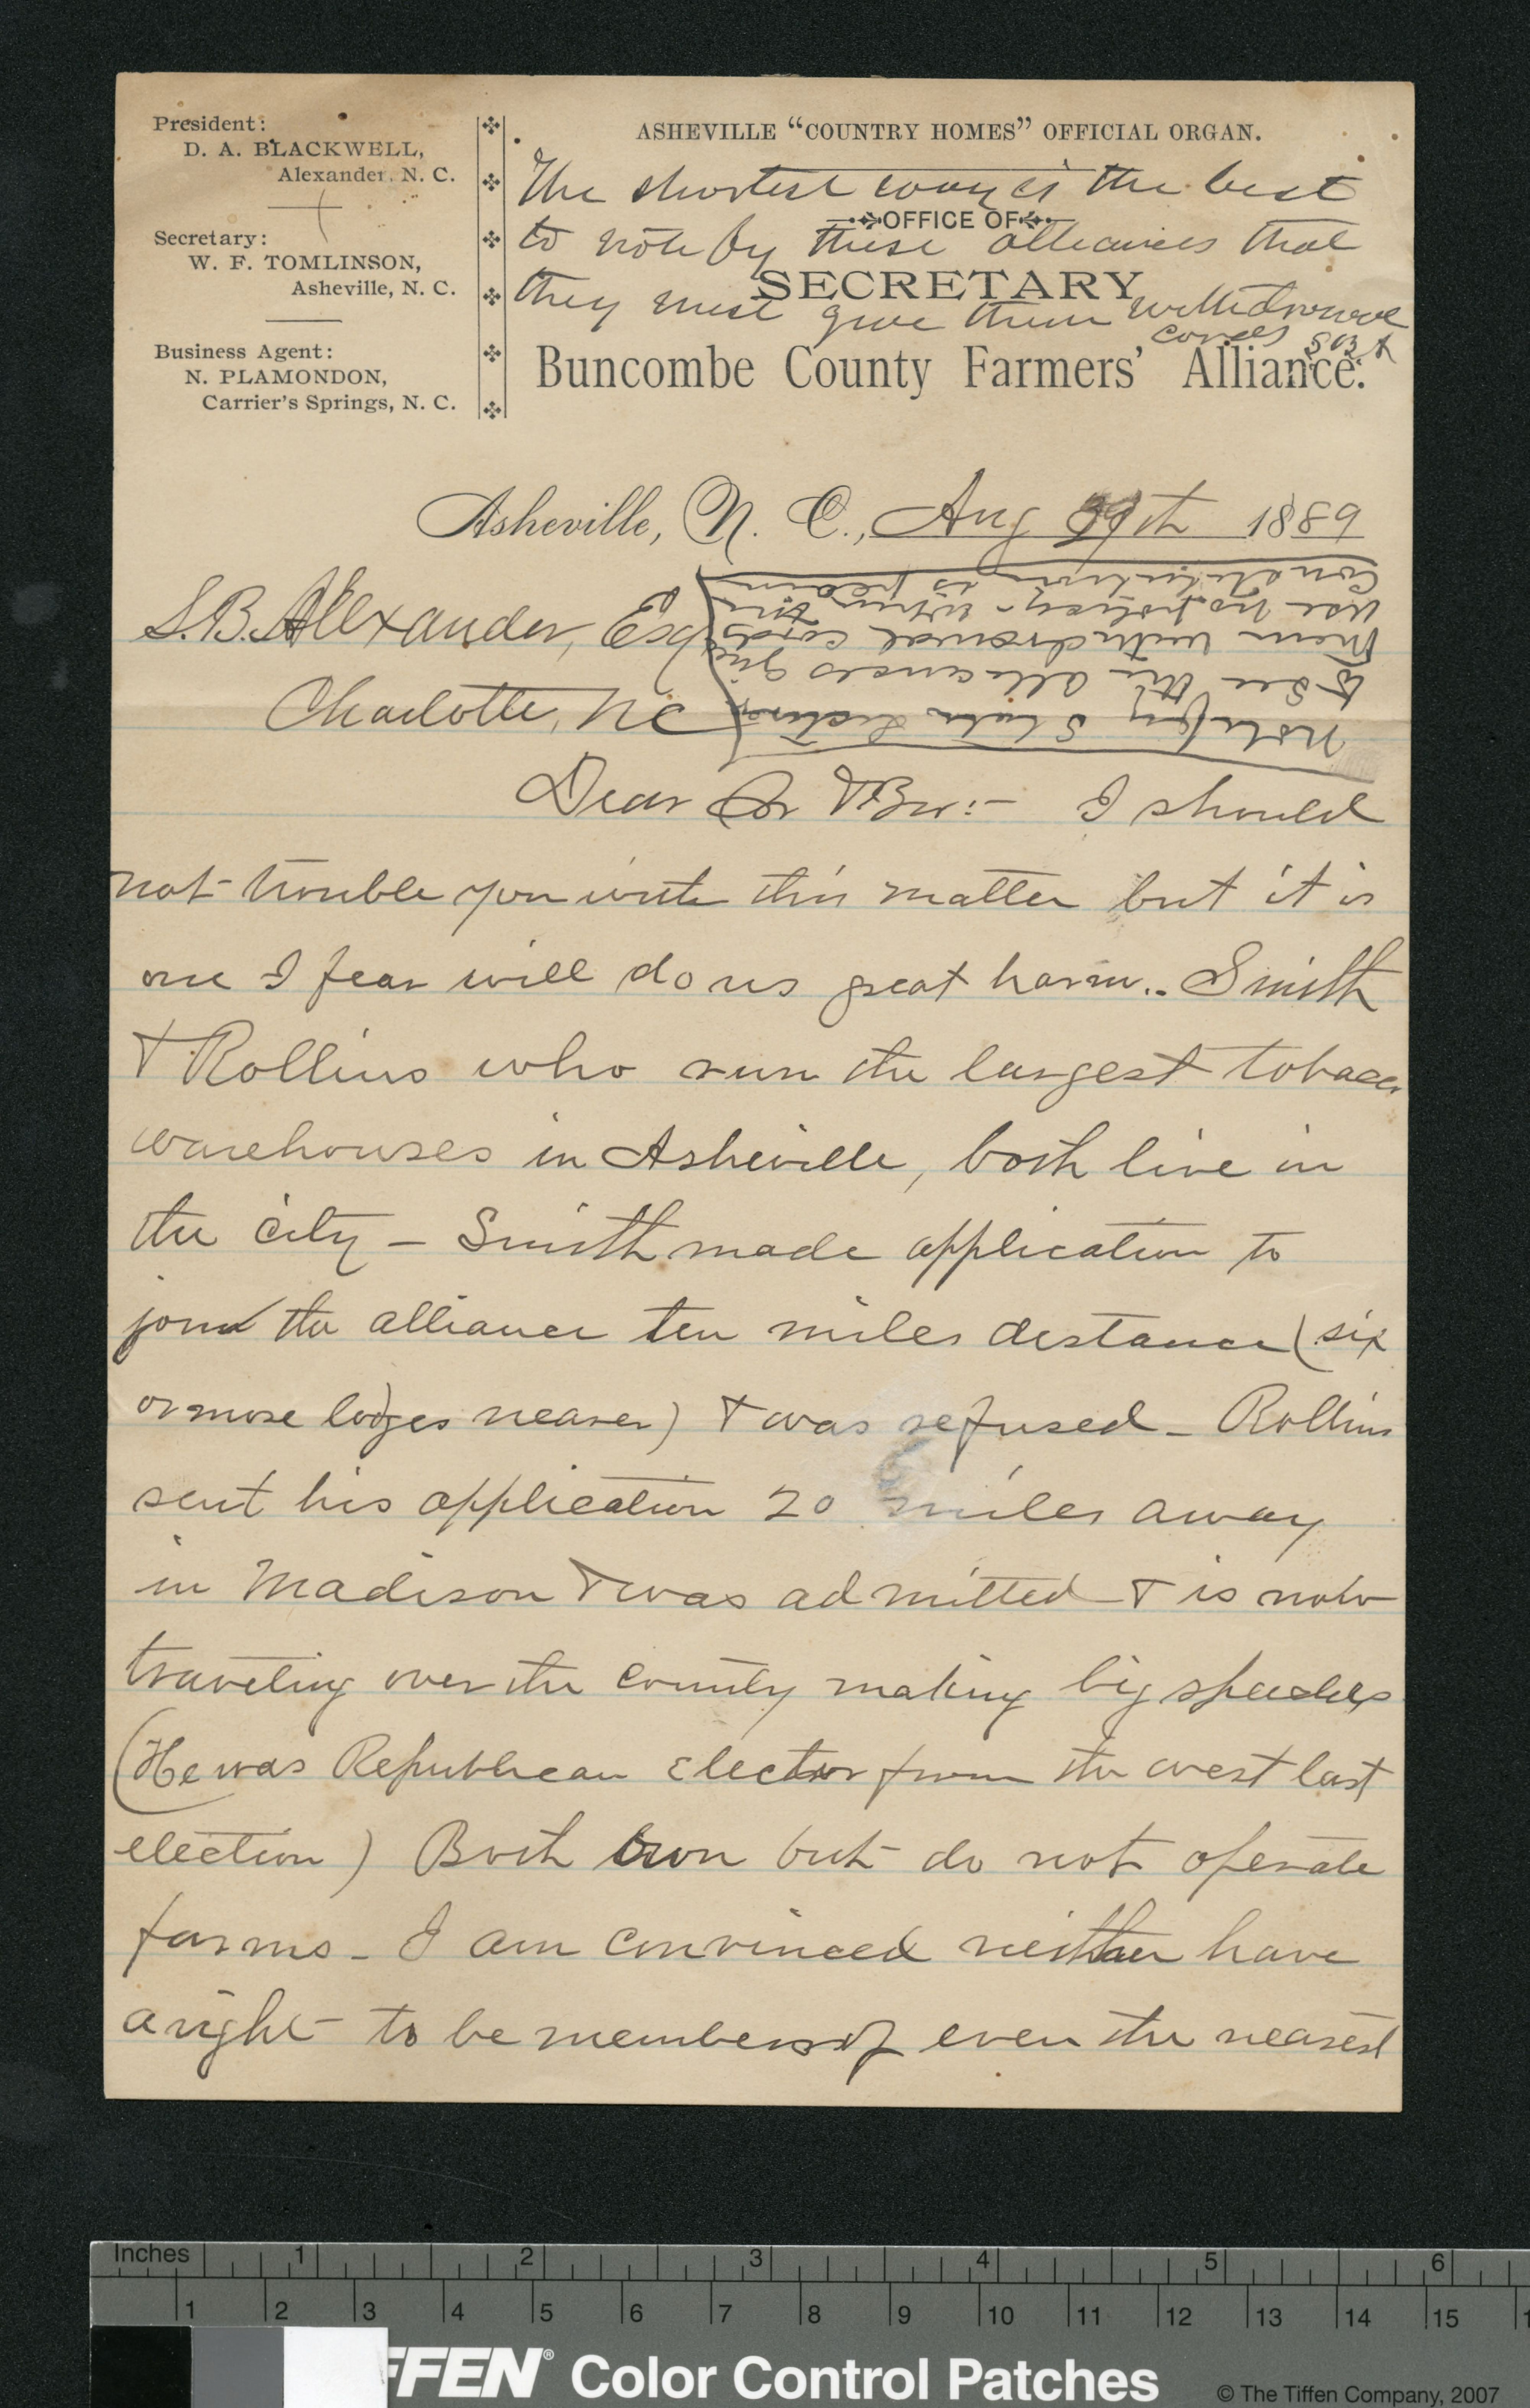 President:
D. A. BLACKWELL,
Alexander. N. C.
Secretary:
W. F. TOMLINSON,
Asheville, N. C.
Business Agent:
N. PLAMONDON,
Carrier's Springs, N. C.
ASHEVILLE “COUNTRY HOMES” OFFICIAL ORGAN.
The shortest way is the best
OFFICE OF
to note by these alliances that
SECRETARY
they must give them withdrawal
cards SBA
Buncombe County Farmers' Alliance.
Asheville, N. C., Aug 29th 1889
S.B. Alexander, Esq
Charlotte, NC
Notify State Lecturer
to see the alliances give
them withdrawal cards
use no policy - the
Constitution is plain
Dear Sir & Bro:- I should
not trouble you with this matter but it is
one I fear will do us great harm.. Smith
& Rollins who run the largest tobacco
warehouses in Asheville, both live in
the city - Smith made application to
join the alliance ten miles distance (six
or more lodges nearer) & was refused - Rollins
sent his application 20 miles away
in Madison & was admitted & is now
traveling over the county making big speeches
(He was Republican Elector from the west last
election) Both own but do not operate
farms - I am convinced neither have
a right to be members of even the nearest
Inches 1 2 3 4 5 6
1 2 3 4 5 6 7 8 9 10 11 12 13 14 15
FFEN® Color Control Patches
© The Tiffen Company, 2007